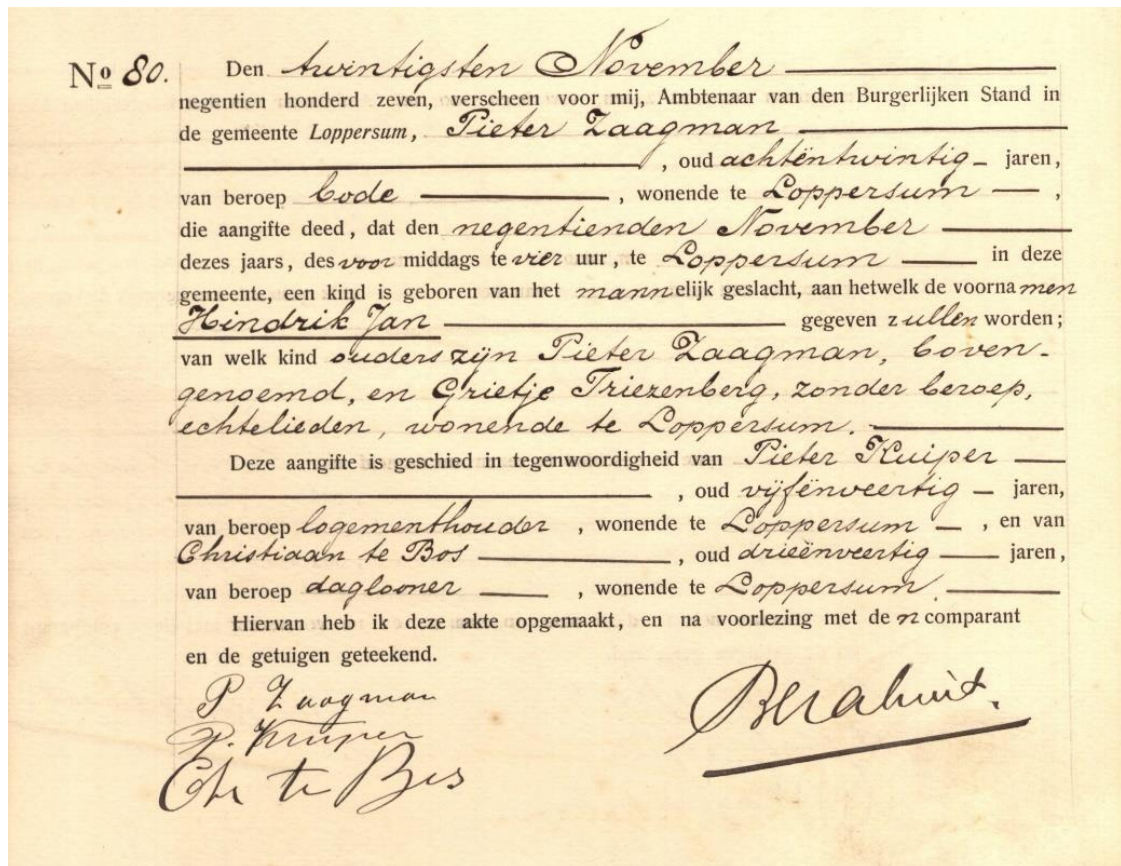 No 80. Den twintigsten November
negentien honderd zeven, verscheen voor mij, Ambtenaar van den Burgerlijken Stand in
de gemeente Loppersum, Pieter Zaagman
, oud achtëntwintig jaren,
van beroep bode, wonende te Loppersum,
die aangifte deed, dat den negentienden November
dezes jaars, des voor middags te vier uur, te Loppersum in deze
gemeente, een kind is geboren van het mannelijk geslacht, aan hetwelk de voornamen
Hindrik Jan gegeven zullen worden;
van welk kind ouders zijn Pieter Zaagman, boven-
genoemd, en Grietje Triezenberg, zonder beroep,
echtelieden, wonende te Loppersum.
Deze aangifte is geschied in tegenwoordigheid van Pieter Kuiper
, oud vijfënveertig jaren,
van beroep logementhouder, wonende te Loppersum, en van
Christiaan te Bos, oud drieënveertig jaren,
van beroep daglooner, wonende te Loppersum.
Hiervan heb ik deze akte opgemaakt, en na voorlezing met den comparant
en de getuigen geteekend.
P Zaagman
P. Kuiper
Chr te Bos